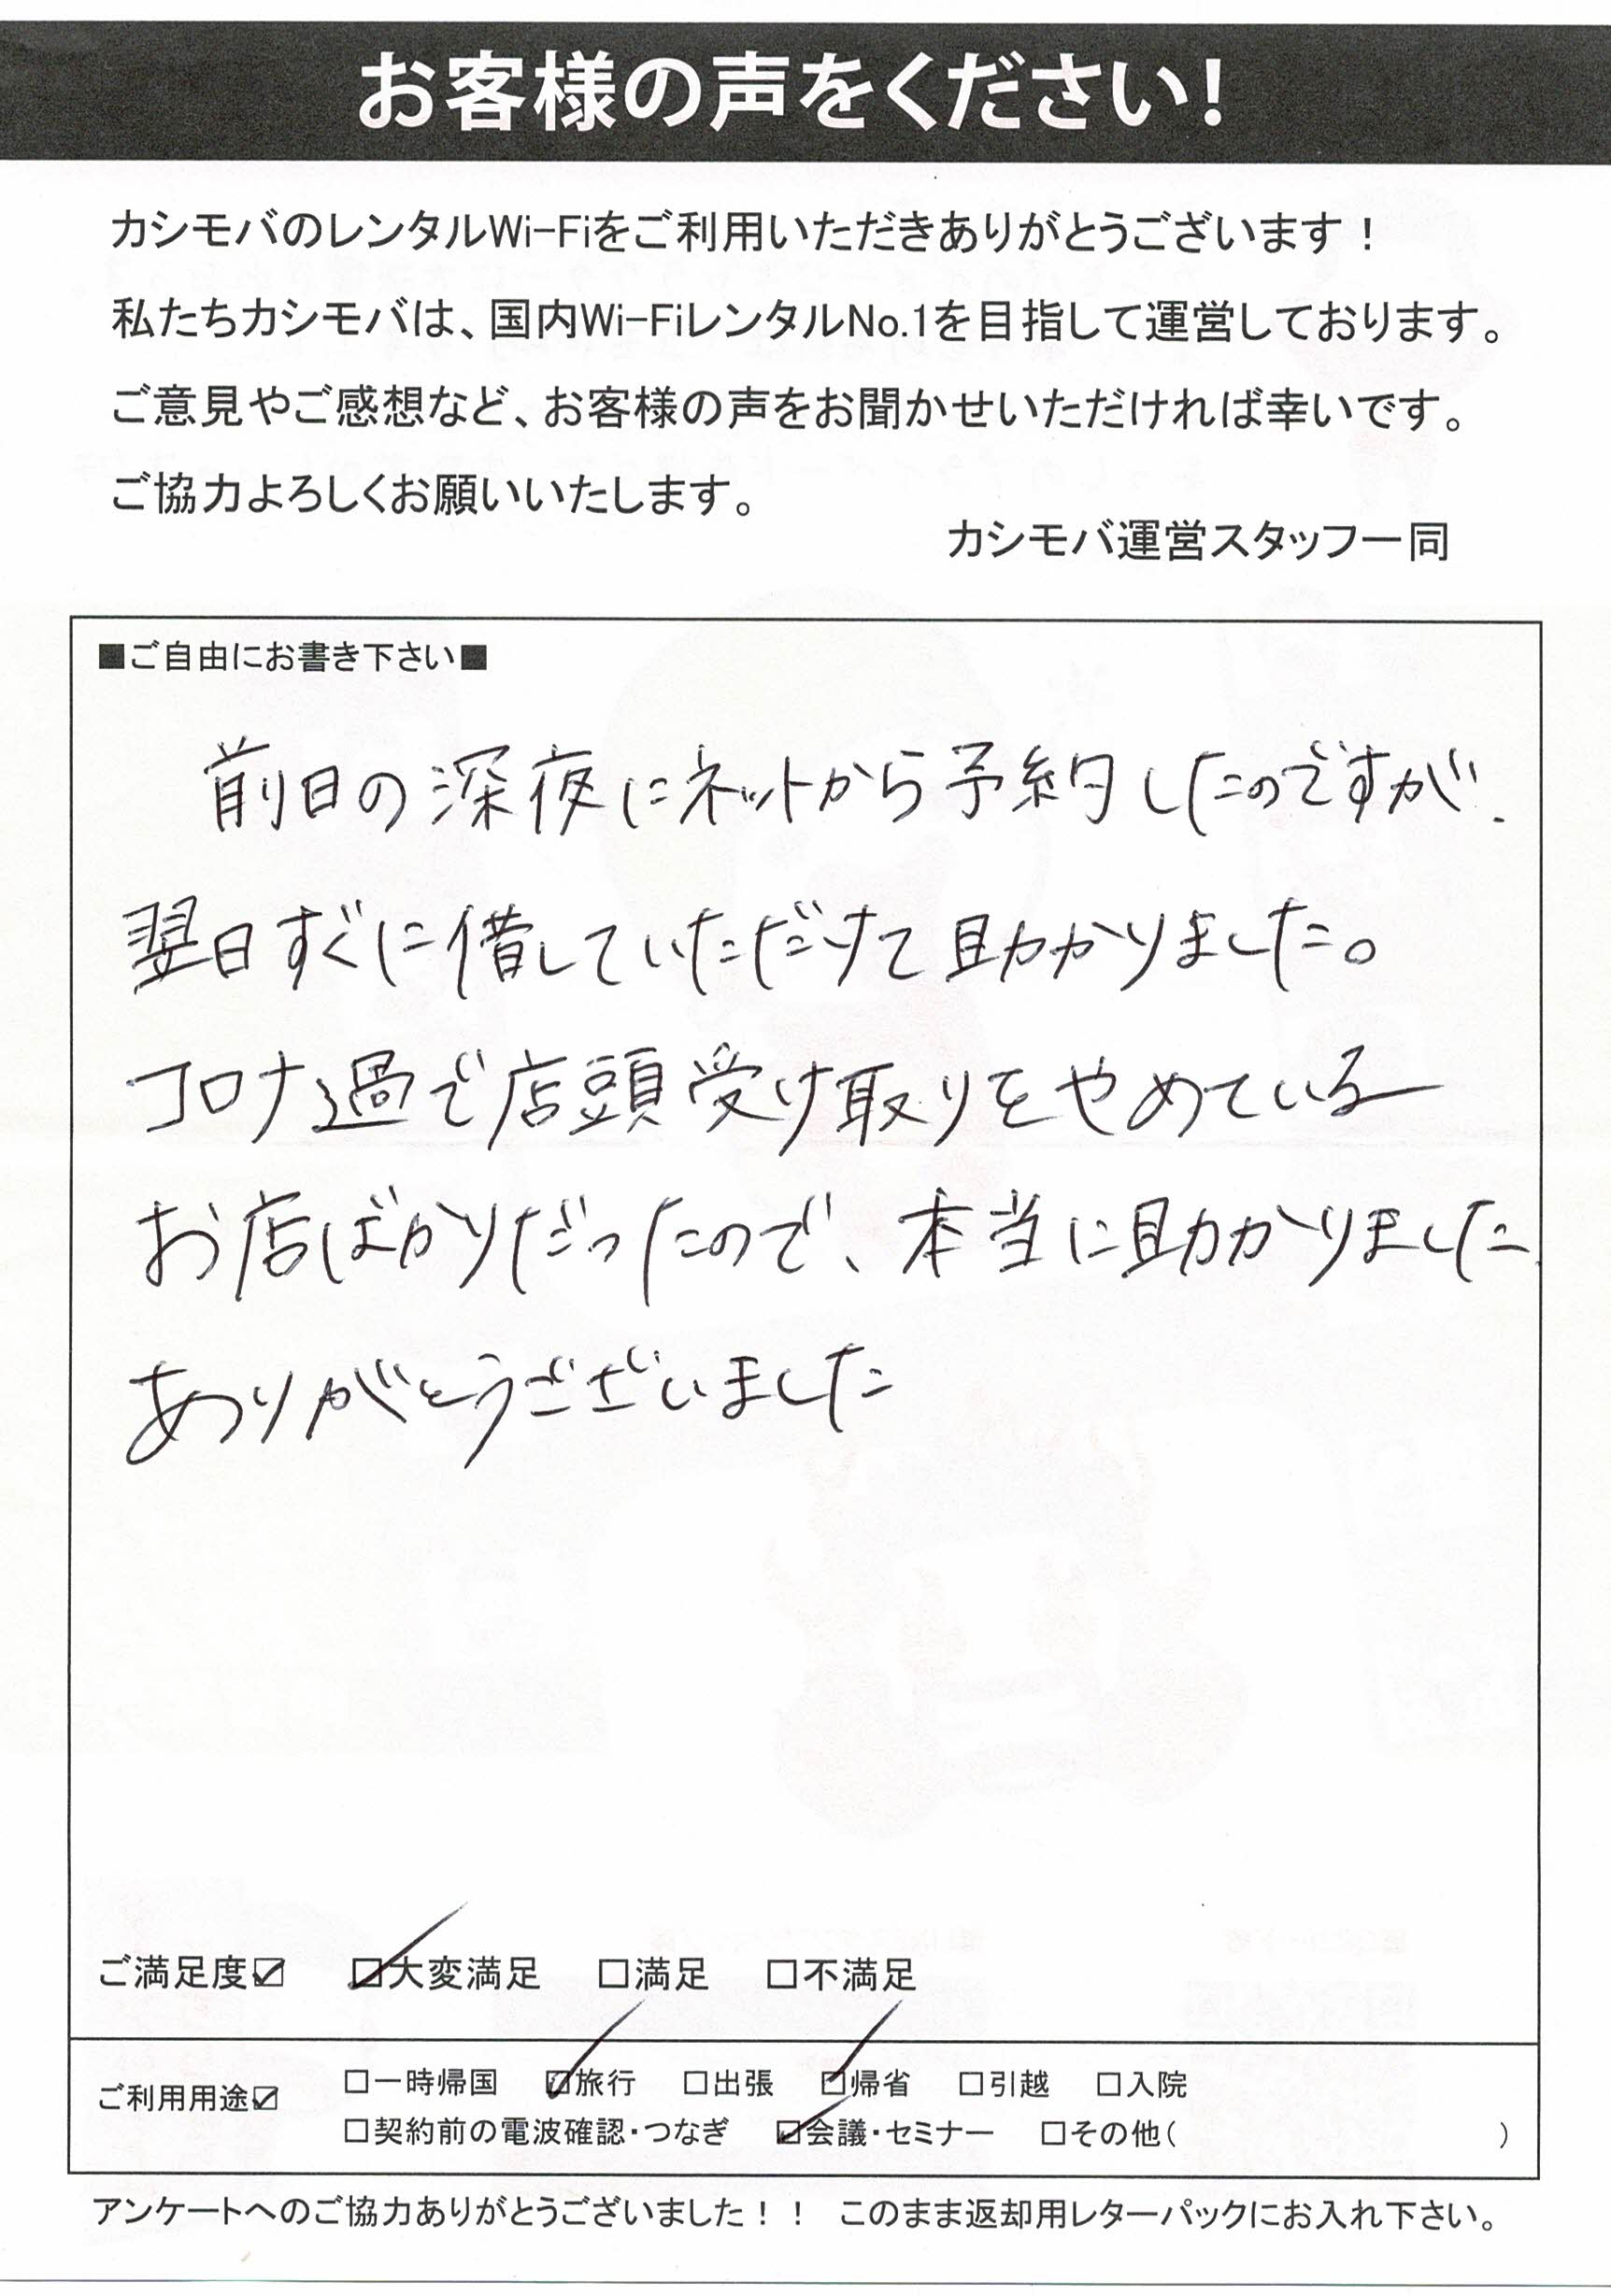 お客様の声をください!
カシモバのレンタルWi-Fiをご利用いただきありがとうございます！
私たちカシモバは、国内Wi-FiレンタルNo.1を目指して運営しております。
ご意見やご感想など、お客様の声をお聞かせいただければ幸いです。
ご協力よろしくお願いいたします。
カシモバ運営スタッフ一同
■ご自由にお書き下さい■
前日の深夜にネットから予約したのですが、
翌日すぐに借していただけて助かりました。
コロナ過で店頭受け取りをやめている
お店ばかりだったので、本当に助かりました。
ありがとうございました
ご満足度☑ ☑大変満足 □満足 □不満足
ご利用用途☑ □一時帰国 ☑旅行 □出張 ☑帰省 □引越 □入院
□契約前の電波確認・つなぎ ☑会議・セミナー □その他( )
アンケートへのご協力ありがとうございました！！ このまま返却用レターパックにお入れ下さい。